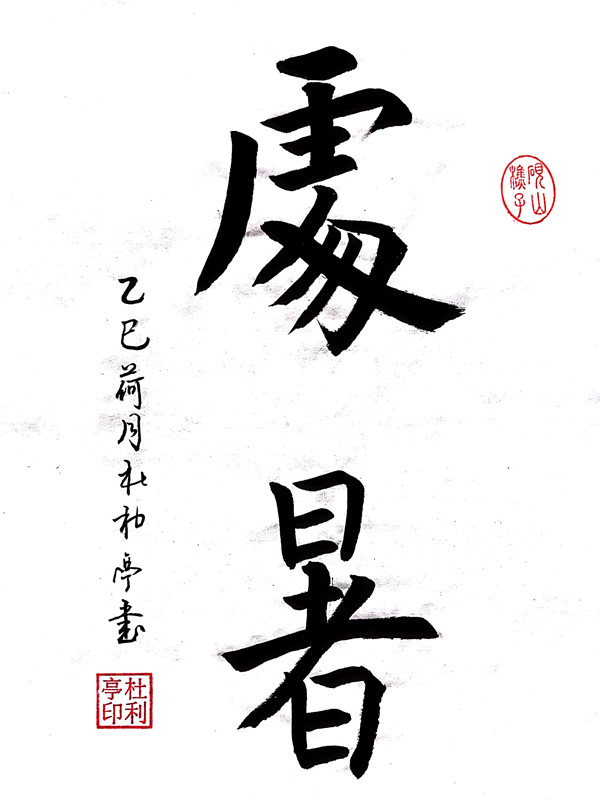 處暑
乙巳荷月杜利亭書
杜利
亭印
硯山
樵子